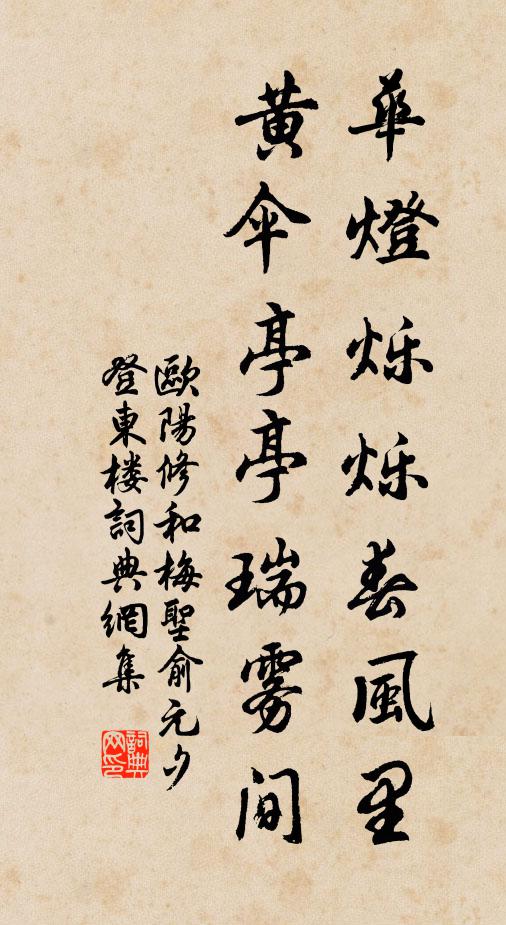 華燈烁烁春風里
黃伞亭亭瑞雾間
歐陽修和梅聖俞元夕
登東楼詞典網集
詞典网印